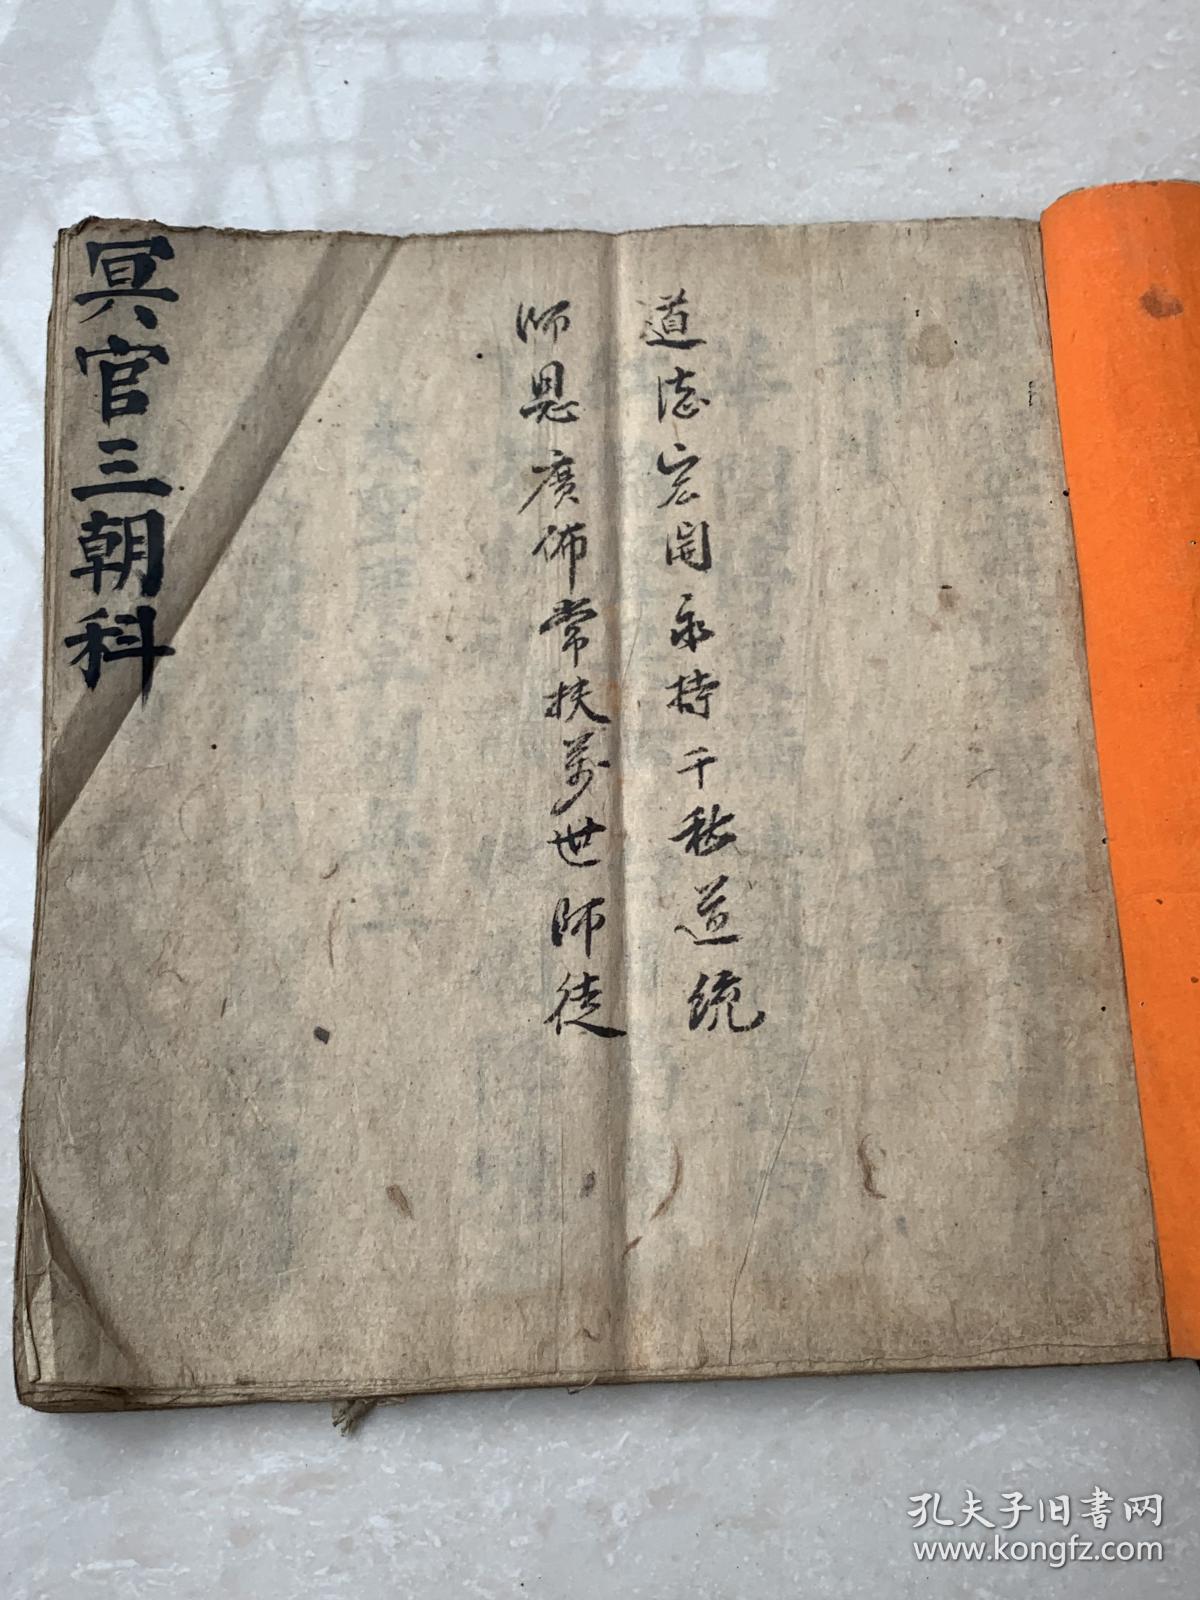 道法宏開永持千秋道統
師恩廣佈常扶萬世師徒
冥官三朝科
孔夫子旧书网
www.kongfz.com